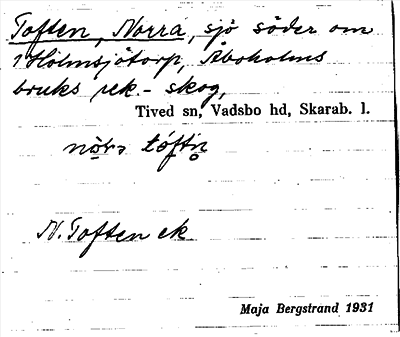 Toften, Norra, sjö söder om
Holmsjötorp, Åboholms
bruks rek.- skog,
Tived sn, Vadsbo hd, Skarab. l.
nörs tóftn̥
N. Toften ek
Maja Bergstrand 1931